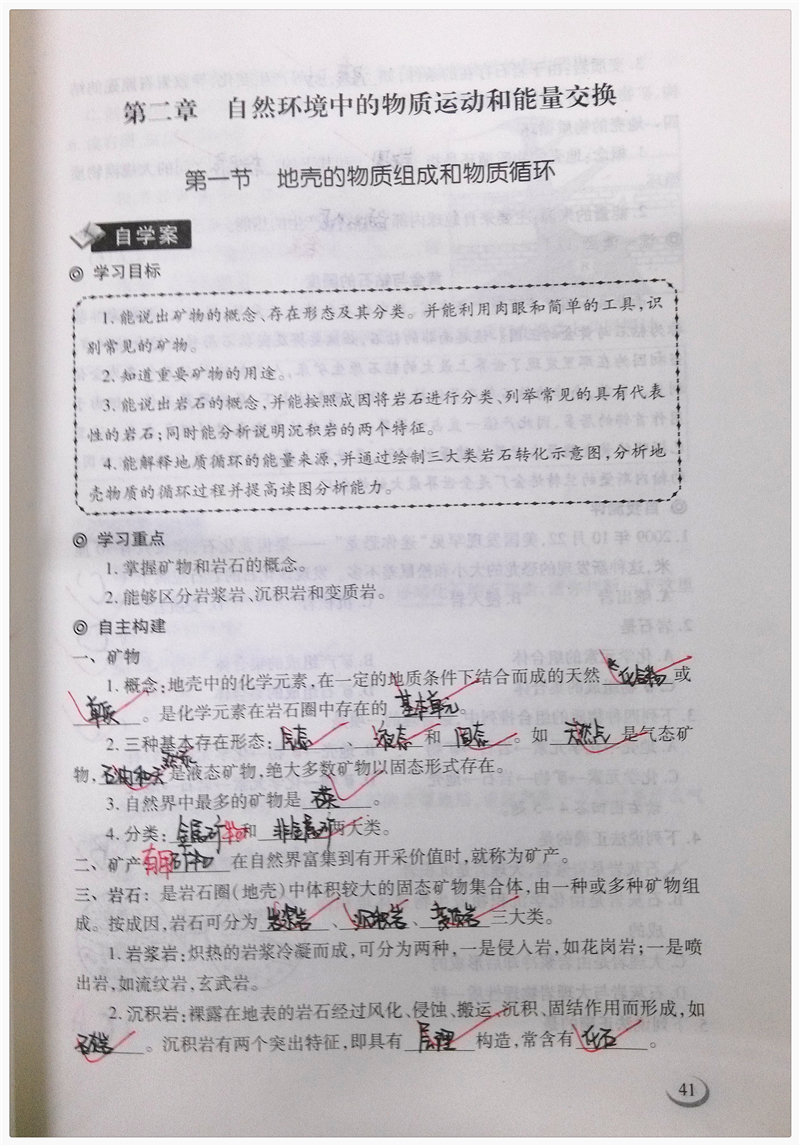 第二章 自然环境中的物质运动和能量交换
第一节 地壳的物质组成和物质循环
自学案
◎ 学习目标
1. 能说出矿物的概念、存在形态及其分类。并能利用肉眼和简单的工具,识
别常见的矿物。
2. 知道重要矿物的用途。
3. 能说出岩石的概念,并能按照成因将岩石进行分类、列举常见的具有代表
性的岩石;同时能分析说明沉积岩的两个特征。
4. 能解释地质循环的能量来源,并通过绘制三大类岩石转化示意图,分析地
壳物质的循环过程并提高读图分析能力。
◎ 学习重点
1. 掌握矿物和岩石的概念。
2. 能够区分岩浆岩、沉积岩和变质岩。
◎ 自主构建
一、矿物
1. 概念:地壳中的化学元素,在一定的地质条件下结合而成的天然 化合物 或
单质 。是化学元素在岩石圈中存在的 基本单元 。
2. 三种基本存在形态: 气态 、 液态 和 固态 。如 天然气 是气态矿
物, 石油和天然汞 是液态矿物,绝大多数矿物以固态形式存在。
3. 自然界中最多的矿物是 石英 。
4. 分类: 金属矿物 和 非金属矿 两大类。
二、矿产: 有用矿物 在自然界富集到有开采价值时,就称为矿产。
三、岩石: 是岩石圈(地壳)中体积较大的固态矿物集合体,由一种或多种矿物组
成。按成因,岩石可分为 岩浆岩 、 沉积岩 、 变质岩 三大类。
1. 岩浆岩:炽热的岩浆冷凝而成,可分为两种,一是侵入岩,如花岗岩;一是喷
出岩,如流纹岩,玄武岩。
2. 沉积岩:裸露在地表的岩石经过风化、侵蚀、搬运、沉积、固结作用而形成,如
。沉积岩有两个突出特征,即具有 层理 构造,常含有 化石 。
41